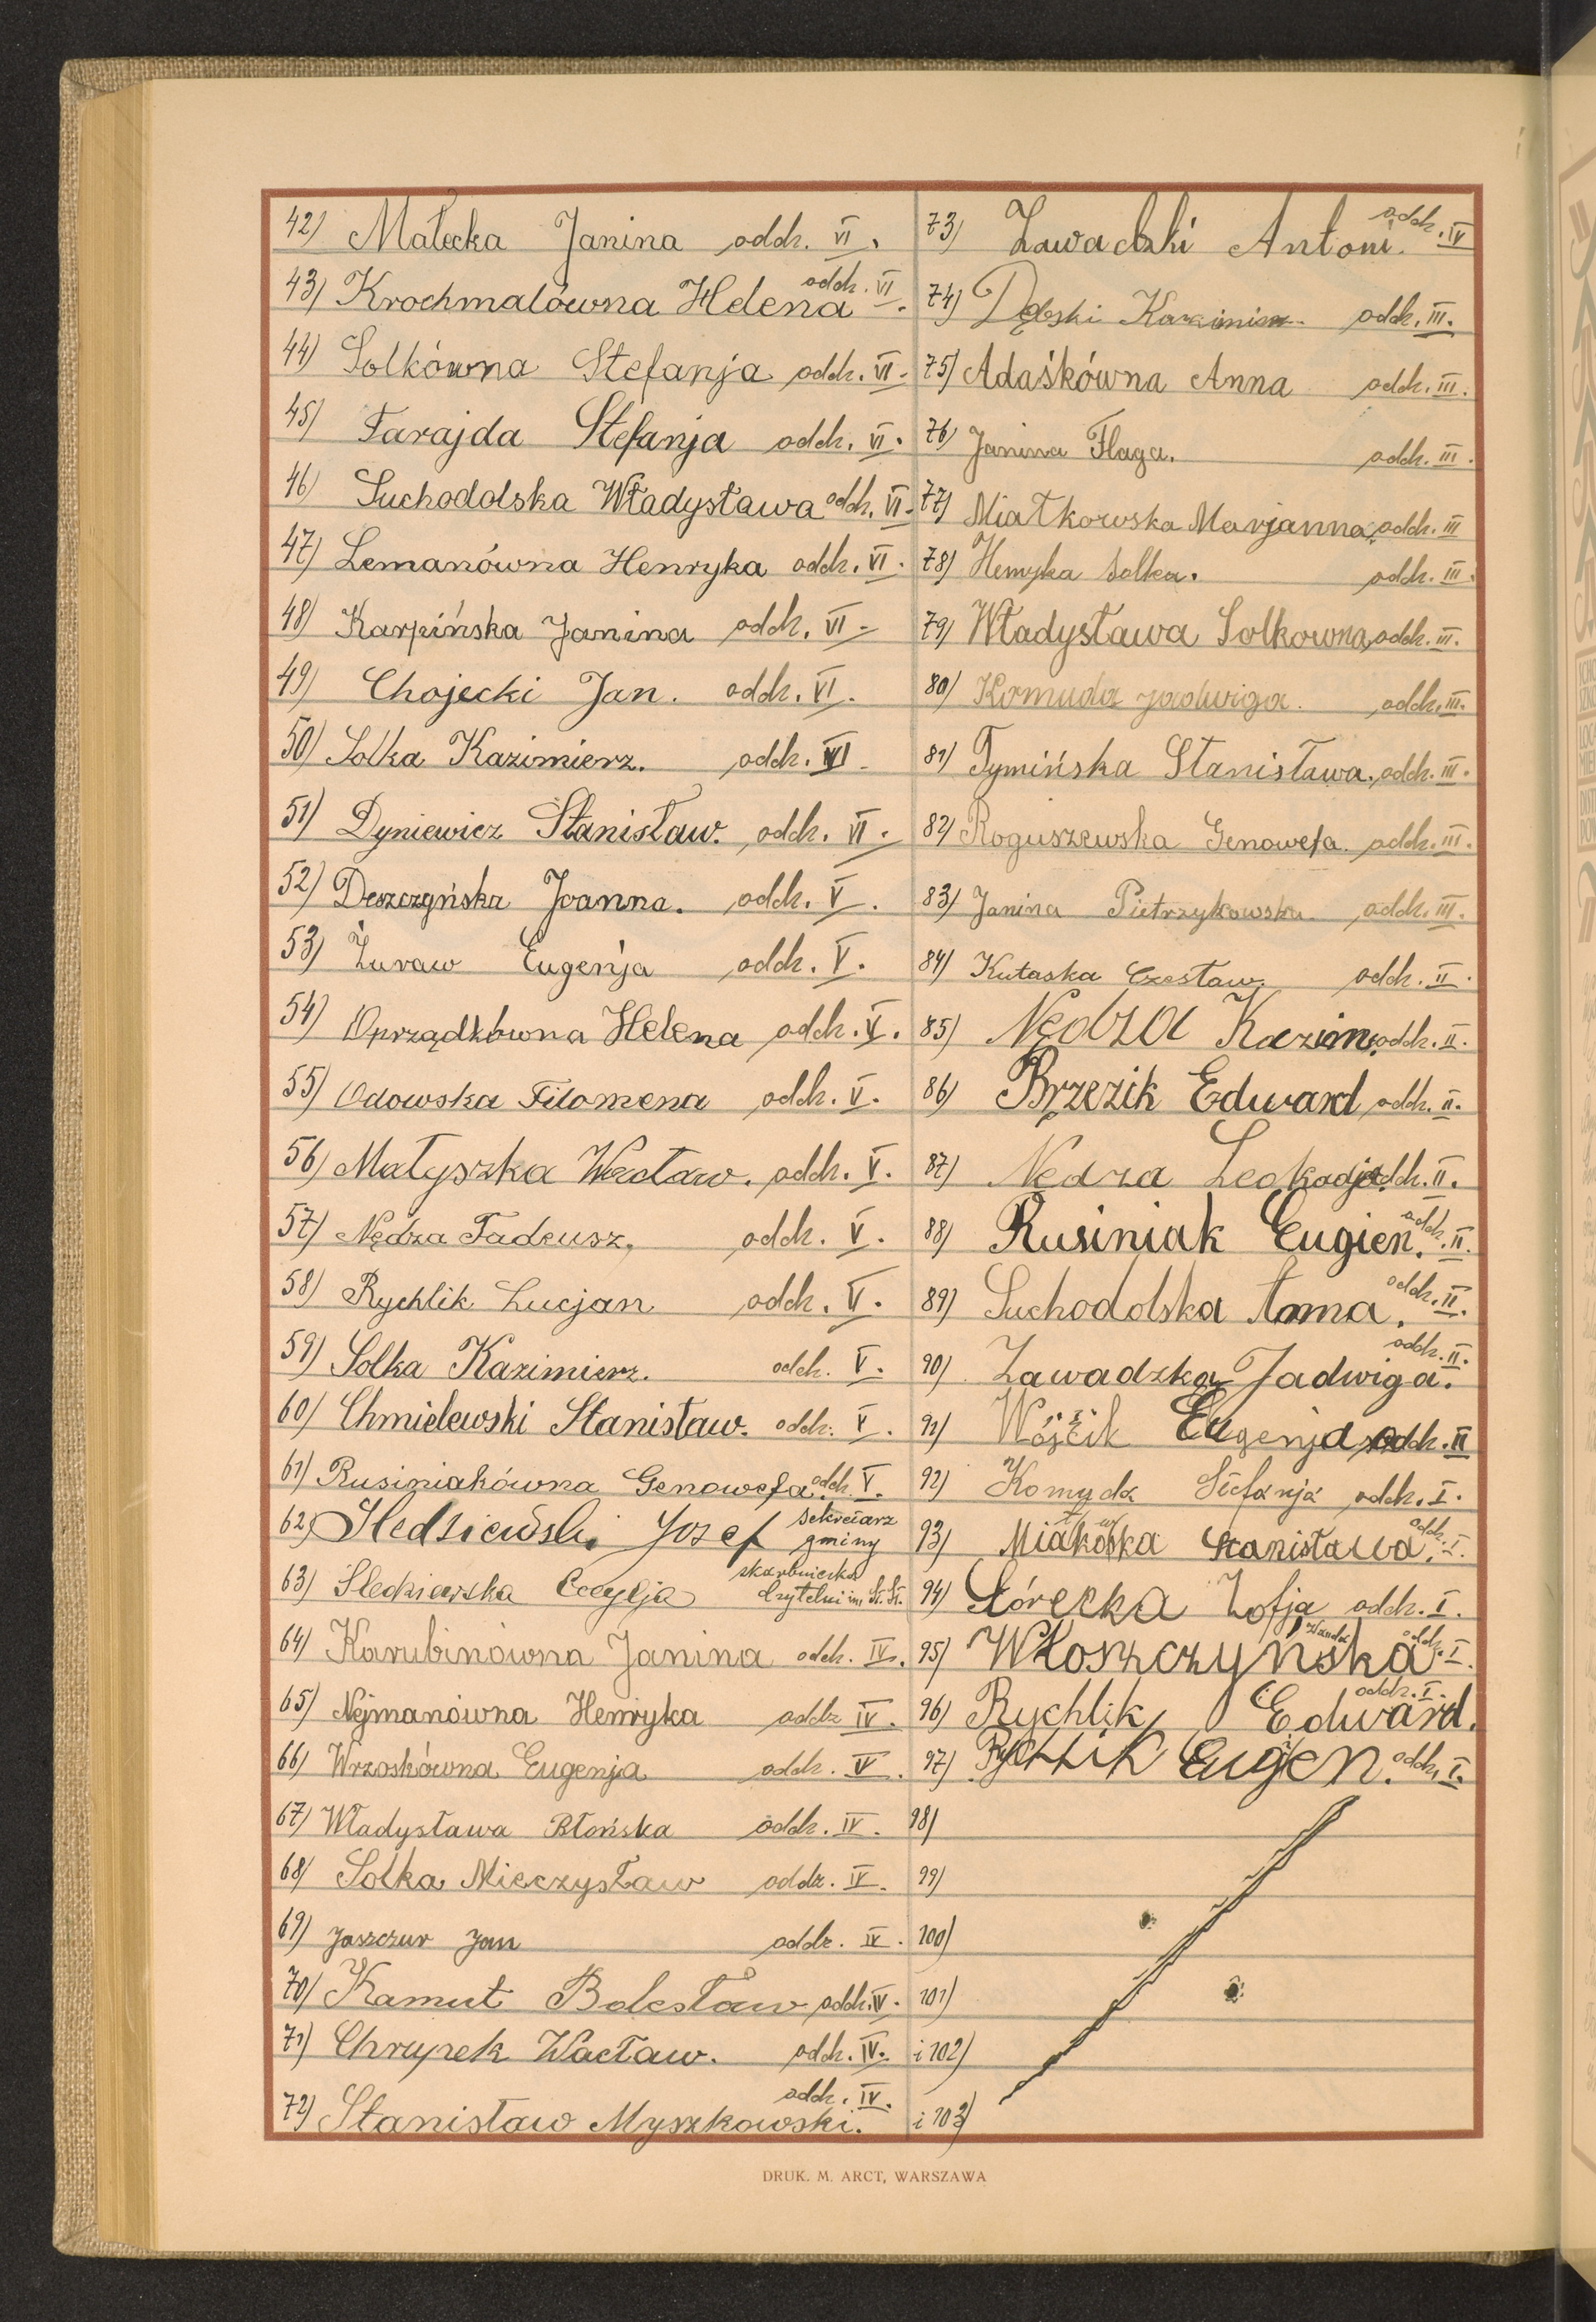 42) Małecka Janina oddz. VI.
43) Krochmalówna Helena oddz. VI.
44) Solkówna Stefanja oddz. VI.
45) Tarajda Stefanja oddz. VI.
46) Suchodolska Władysława oddz. VI.
47) Lemanówna Henryka oddz. VI.
48) Karpińska Janina oddz. VI.
49) Chojecki Jan. oddz. VI.
50) Solka Kazimierz. oddz. VI.
51) Dyniewicz Stanisław. oddz. VI.
52) Deszczyńska Joanna. oddz. V.
53) Żuraw Eugenja oddz. V.
54) Oprządkówna Helena oddz. V.
55) Odowska Filomena oddz. V.
56) Małyszka Wacław. oddz. V.
57) Nędza Tadeusz, oddz. V.
58) Rychlik Lucjan oddz. V.
59) Solka Kazimierz. oddz. V.
60) Chmielewski Stanisław. oddz. V.
61) Rusiniakówna Genowefa oddz. V.
62) Śledziewski Józef sekretarz gminy
63) Śledziewska Cecylja skarbniczka Czytelni im. St. St.
64) Karubinówna Janina oddz. IV.
65) Nejmanówna Henryka oddz IV.
66) Wrzoskówna Eugenja oddz. IV.
67) Władysława Błońska oddz. IV.
68) Solka Mieczysław oddz. IV.
69) Jaszczur Jan oddz. IV.
70) Kamut Bolesław oddz. IV.
71) Chrupek Wacław. oddz. IV.
72) Stanisław Myszkowski. oddz. IV.
73) Zawadzki Antoni. oddz. IV
74) Dębski Kazimierz oddz. III.
75) Adaśkówna Anna oddz. III.
76) Janina Flaga. oddz. III.
77) Miałkowska Marjanna, oddz. III
78) Henryka Solka. oddz. III.
79) Władysława Solkowna, oddz. III.
80) Komuda Jadwiga. oddz. III.
81) Tymińska Stanisława. oddz. III.
82) Roguszewska Genowefa. oddz. III.
83) Janina Pietrzykowska oddz. III.
84) Kutaska Czesław, oddz. II.
85) Nędza Kazim. oddz. II.
86) Brzezik Edward oddz. II.
87) Nędza Leokadja. oddz. II.
88) Rusiniak Eugien. oddz. II.
89) Suchodolska Anna. oddz. II.
90) Zawadzka Jadwiga. oddz. II.
91) Wójcik Eugenja oddz. II
92) Komuda Stefanja oddz. I.
93) Miałkowska Stanisława. oddz. I.
94) Górecka Zofja oddz. I.
95) Włoszczyńska oddz. I.
96) Rychlik Edward. oddz. I.
97) Rychlik Eugen. oddz. I.
98)
99)
100)
101)
i 102)
i 103)
DRUK. M. ARCT, WARSZAWA